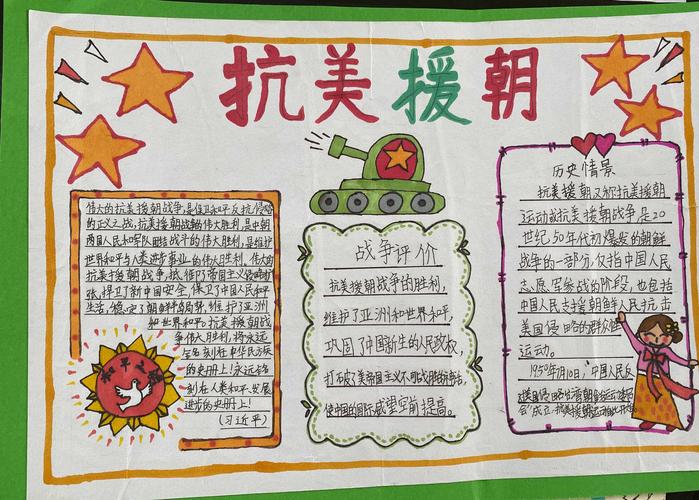 抗美援朝
伟大的抗美援朝战争,是保卫和平反抗侵略
的正义之战,抗美援朝战争的伟大胜利,是中朝
两国人民和军队团结战斗的伟大胜利,是维护
世界和平与人类进步事业的伟大胜利。伟大的
抗美援朝战争,抵御了帝国主义侵略扩
张,捍卫了新中国安全,保卫了中国人民和平
生活,稳定了朝鲜半岛局势,维护了亚洲
和世界和平。抗美援朝战
争伟大胜利,将永远
铭刻在中华民族
的史册上!永远铭
刻在人类和平、发展
进步的史册上!
(习近平)
和平之鸽
战争评价
抗美援朝战争的胜利,
维护了亚洲和世界和平,
巩固了中国新生的人民政权,
打破了美帝国主义不可战胜的神话,
使中国的国际威望空前提高。
历史情景
抗美援朝又称抗美援朝
运动或抗美援朝战争是20
世纪50年代初爆发的朝鲜
战争的一部分,仅指中国人民
志愿军参战的阶段,也包括
中国人民支援朝鲜人民抗击
美国侵略的群众性
运动。
1950年7月10日,“中国人民反
对美国侵略台湾朝鲜运动委员
会”成立,抗美援朝运动